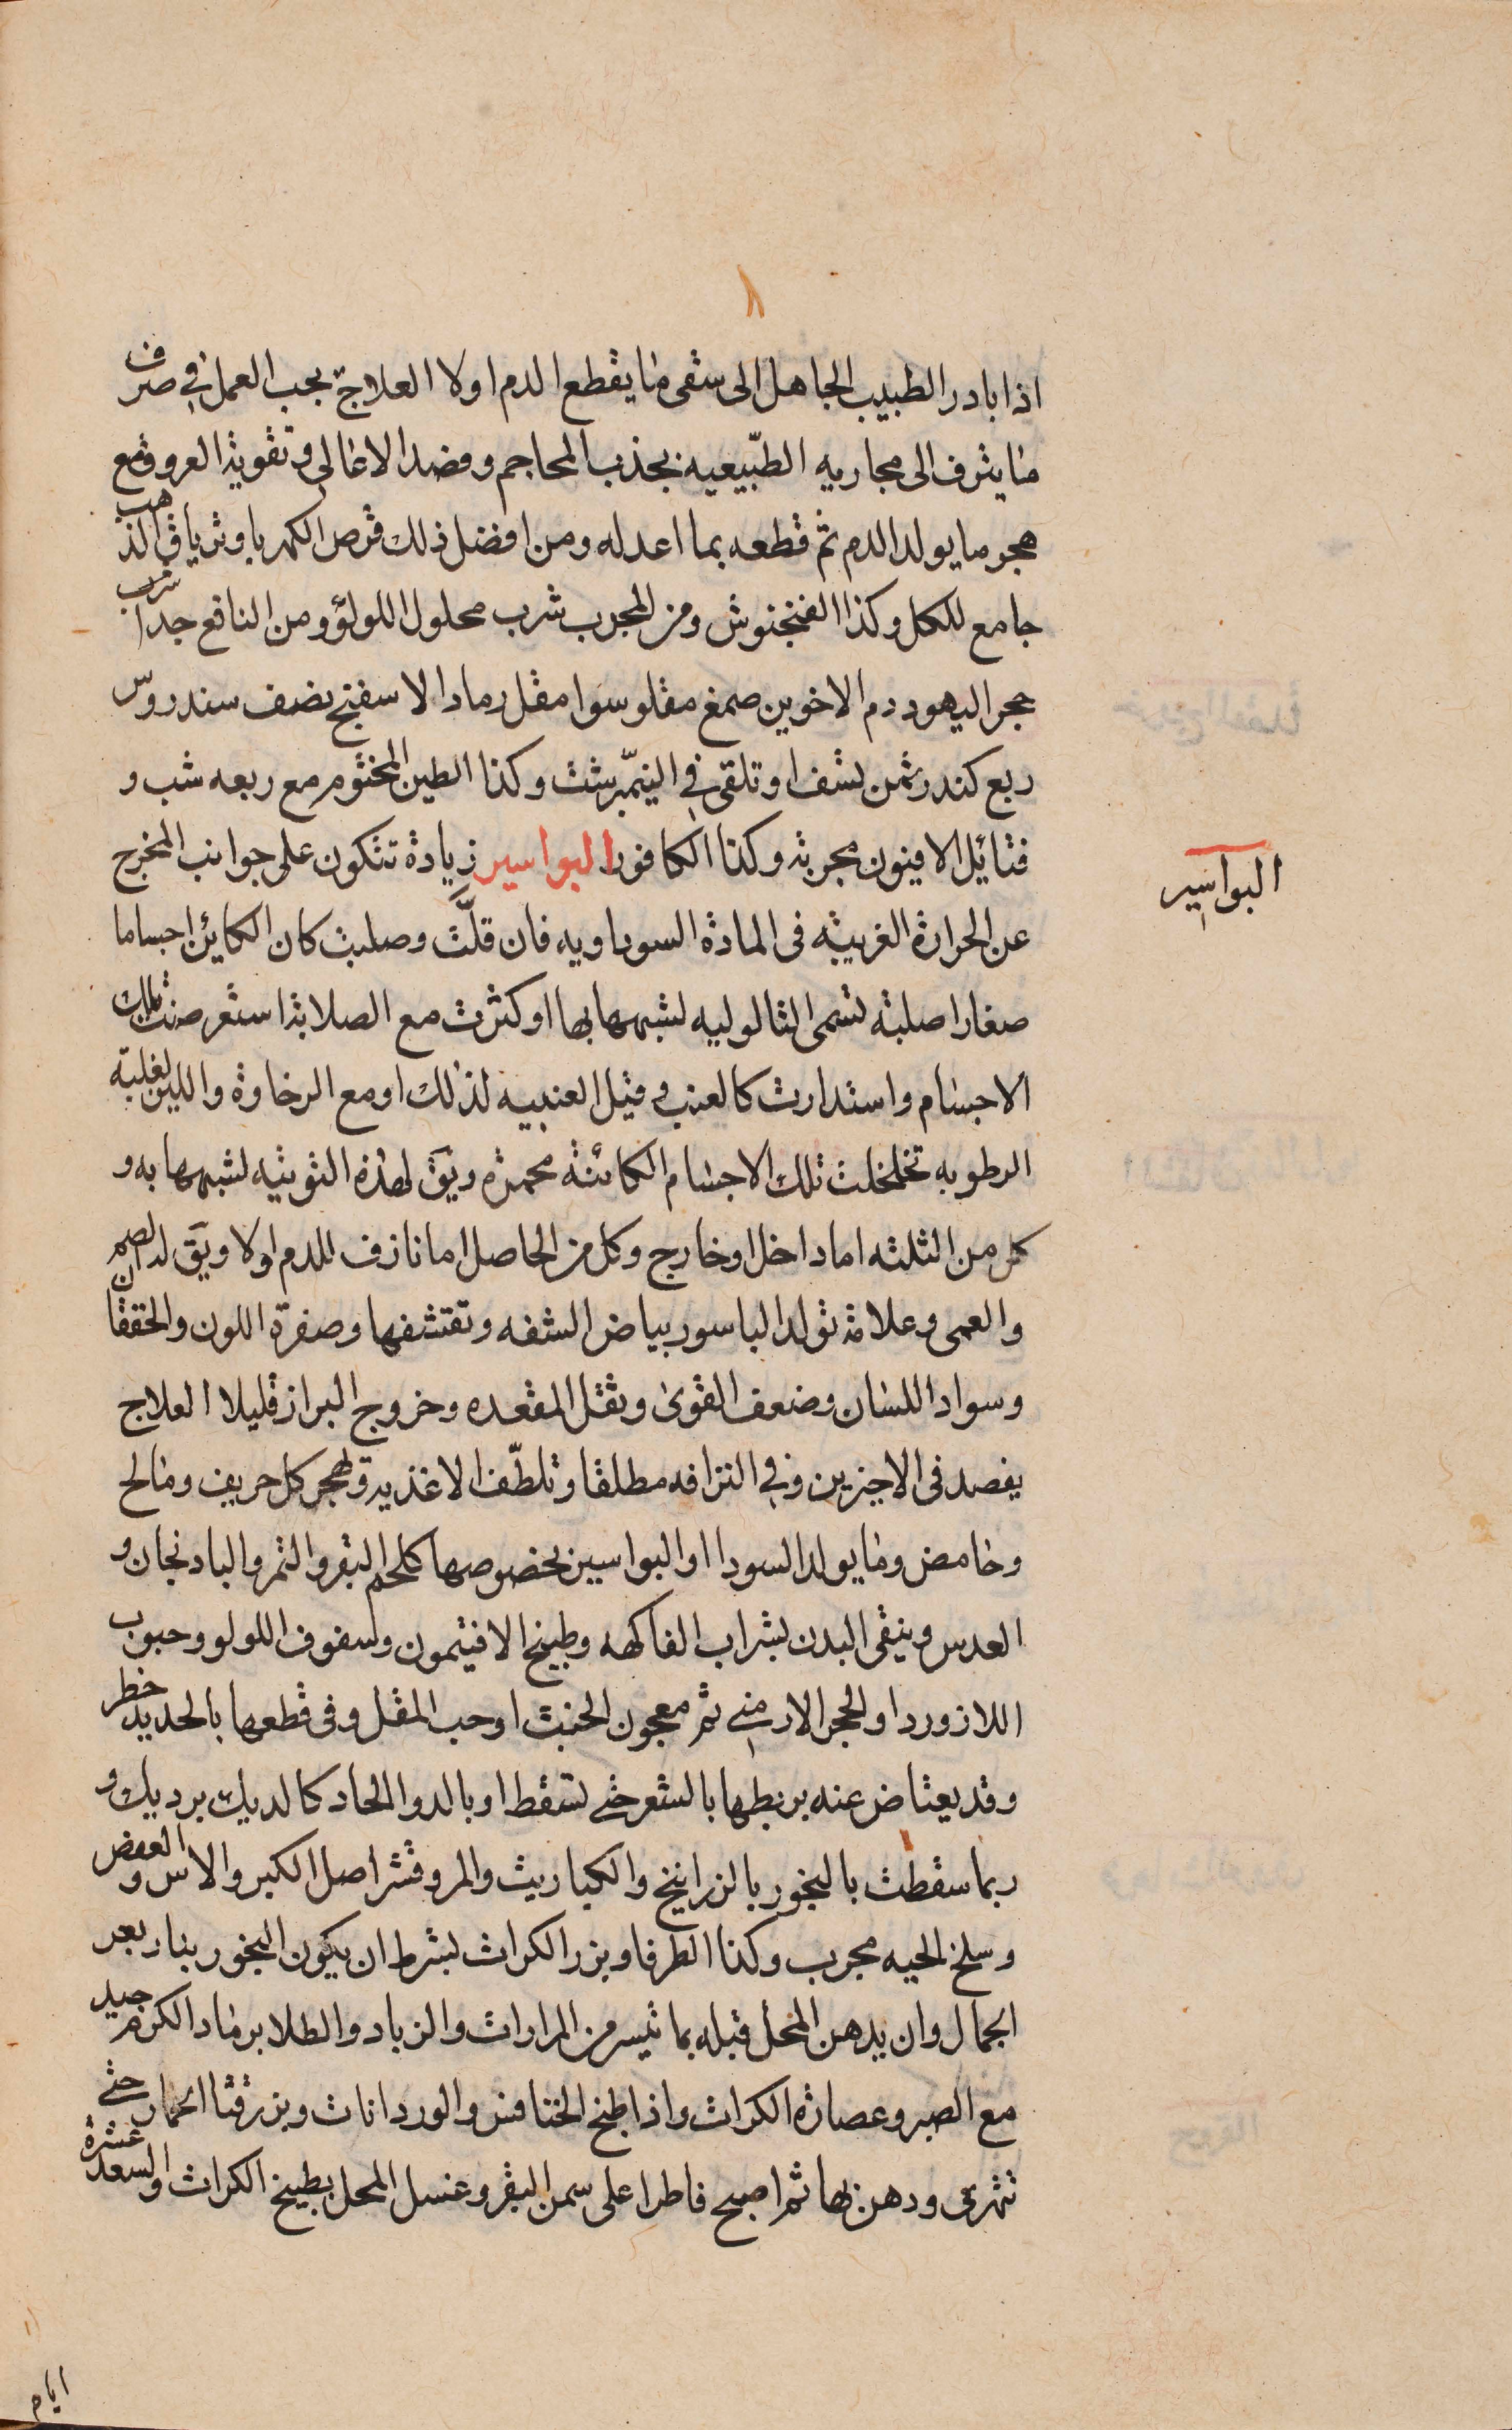 اذا بادر الطبيب الجاهل الى سقى ما يقطع الدم اولا العلاج يجب العمل في صرف
ما ينزف الى مجاريه الطبيعيه بجذب المحاجم وفصد الاعالى وتقوية العروق مع
هجر ما يولد الدم ثم قطعه بما اعد له ومن افضل ذلك قرص الكهربا وترياق الذهب
جامع للكل وكذا الفنجنوش ومن المجرب شرب محلول اللولؤ ومن النافع جدا شرب
حجر اليهود دم الاخوين صمغ مقلو سوا مقل رماد الاسفنج نصف سندروس
ربع كندر ثمن يشف او تلقى في النيمبرشت وكذا الطين المختوم مع ربعه شب و
فتائل الافيون مجربة وكذا الكافور البواسير زيادة تتكون على جوانب المخرج
البواسير
عن الحرارة الغريبه فى المادة السوداويه فان قلت وصلبت كان الكائن اجساما
صغارا صلبة تسمى الثالوليه لشبهها بها او كثرت مع الصلابة استعرضت تلك
الاجسام واستدارت كالعنب وقيل العنبيه لذلك او مع الرخاوة واللين لغلبة
الرطوبه تخلخلت تلك الاجسام الكائنة محمرة ويق لهذه التوثيه لشبهها به و
كل من الثلثه اما داخل او خارج وكل من الحاصل اما نازف للدم اولا ويق له الصم
والعمى وعلامة تولد الباسور بياض الشفه وتقشفها وصفرة اللون والخفقان
وسواد اللسان وضعف القوى وثقل المقعده وخروج البراز قليلا العلاج
يفصد فى الاخيرين وفي النزافه مطلقا وتلطف الاغذيه وهجر كل حريف ومالح
وحامض وما يولد السودا او البواسير بخصوصها كلحم البقر والتمر والبادنجان و
العدس وينقى البدن بشراب الفاكهه وطبيخ الافتيمون وسفوف اللولو وحبوب
اللازورد او الحجر الارمني ثم معجون الخبث او حب المقل وفى قطعها بالحديد خطر
وقد يعتاض عنه بربطها بالشعر حتى تسقط او بالدوا الحاد كالديك برديك و
ربما سقطت بالبخور بالزرانيخ والكباريت والمر وقشر اصل الكبر والاس والعفص
وسلخ الحيه مجرب وكذا الطرفا وبزر الكراث بشرط ان يكون البخور بنار بعر
الجمال وان يدهن المحل قبله بما تيسر من المرارات والزباد والطلا برماد الكرم جيد
مع الصبر وعصارة الكراث واذا طبخ الخنافس والوردانات وبزر قثا الحمار حتى
تتهرى ودهن بها ثم اصبح فاطرا على سمن البقر وغسل المحل بطبيخ الكراث والسعد عشرة
ايام